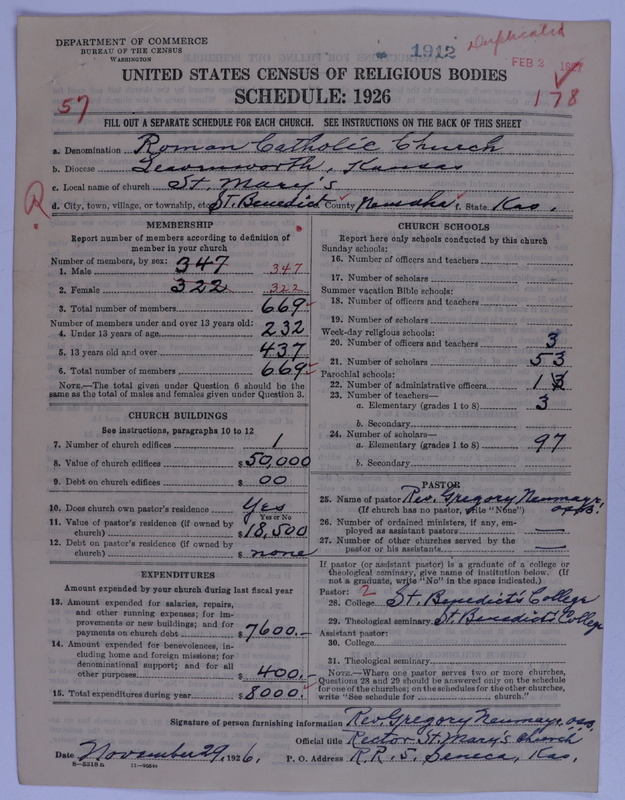 DEPARTMENT OF COMMERCE
BUREAU OF THE CENSUS
WASHINGTON
1912
Duplicated
FEB 2 1927
UNITED STATES CENSUS OF RELIGIOUS BODIES
SCHEDULE: 1926
57
178
FILL OUT A SEPARATE SCHEDULE FOR EACH CHURCH. SEE INSTRUCTIONS ON THE BACK OF THIS SHEET
a. Denomination Roman Catholic Church
b. Diocese Leavenworth, Kansas
c. Local name of church St. Mary's
d. City, town, village, or township, etc. St. Benedict County Nemaha f. State Kas.
R
MEMBERSHIP
Report number of members according to definition of
member in your church
Number of members, by sex:
1. Male 347 347
2. Female 322 322
3. Total number of members 669
Number of members under and over 13 years old:
4. Under 13 years of age 232
5. 13 years old and over 437
6. Total number of members 669
NOTE.—The total given under Question 6 should be the
same as the total of males and females given under Question 3.
CHURCH BUILDINGS
See instructions, paragraphs 10 to 12
7. Number of church edifices 1
8. Value of church edifices $50,000
9. Debt on church edifices $ 00
10. Does church own pastor's residence Yes
Yes or No
11. Value of pastor's residence (if owned by
church) $18,500
12. Debt on pastor's residence (if owned by
church) $ none
EXPENDITURES
Amount expended by your church during last fiscal year
13. Amount expended for salaries, repairs,
and other running expenses; for im-
provements or new buildings; and for
payments on church debt $7600.—
14. Amount expended for benevolences, in-
cluding home and foreign missions; for
denominational support; and for all
other purposes $ 400.—
15. Total expenditures during year $8000.
CHURCH SCHOOLS
Report here only schools conducted by this church
Sunday schools:
16. Number of officers and teachers
17. Number of scholars
Summer vacation Bible schools:
18. Number of officers and teachers
19. Number of scholars
Week-day religious schools:
20. Number of officers and teachers 3
21. Number of scholars 53
Parochial schools:
22. Number of administrative officers 1
23. Number of teachers—
a. Elementary (grades 1 to 8) 3
b. Secondary
24. Number of scholars—
a. Elementary (grades 1 to 8) 97
b. Secondary
PASTOR
25. Name of pastor Rev. Gregory Neumayr, O.S.B.
(If church has no pastor, write "None")
26. Number of ordained ministers, if any, em-
ployed as assistant pastors —
27. Number of other churches served by the
pastor or his assistants —
If pastor (or assistant pastor) is a graduate of a college or
theological seminary, give name of institution below. (If
not a graduate, write "No" in the space indicated.)
Pastor: 2
28. College St. Benedict's College
29. Theological seminary St. Benedict's College
Assistant pastor:
30. College
31. Theological seminary
NOTE.—Where one pastor serves two or more churches,
Questions 28 and 29 should be answered only on the schedule
for one of the churches; on the schedules for the other churches,
write "See schedule for church."
Signature of person furnishing information Rev. Gregory Neumayr, O.S.B.
Official title Rector St. Mary's Church
Date November 29, 1926. P. O. Address R.R. 5. Seneca, Kas.
8—5318 a 11—9554